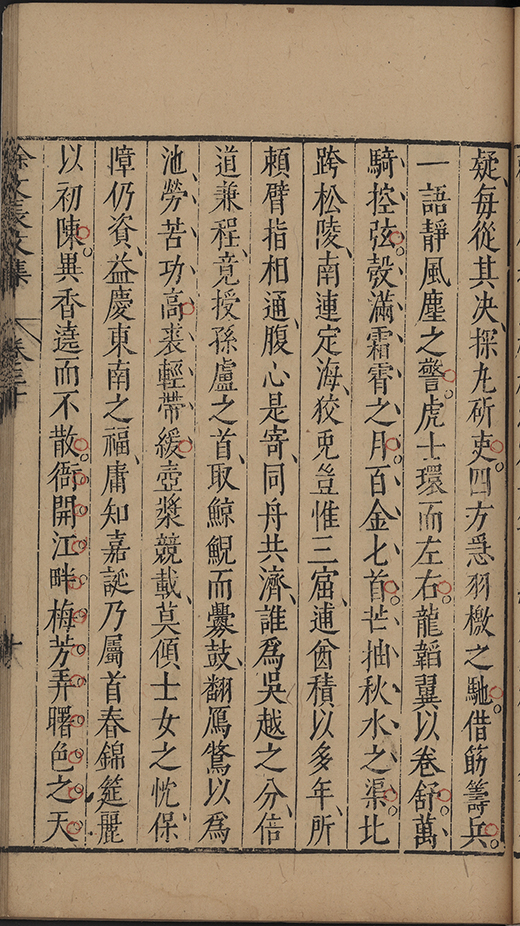 疑每從其決探丸斫吏四方急羽檄之馳借筯籌兵
一語靜風塵之警虎士環而左右龍韜翼以卷舒萬
騎控弦彀滿霜霄之月百金匕首芒抽秋水之渠比
跨松陵南連定海狡兎豈惟三窟逋酋積以多年所
頼臂指相通腹心是寄同舟共濟誰爲吳越之分倍
道兼程竟授孫盧之首取鯨鯢而釁鼓翻鴈鶩以爲
池勞苦功高裘輕帶緩壺漿競載莫傾士女之忱保
障仍資益慶東南之福庸知嘉誕乃屬首春錦筵麗
以初陳異香遶而不散衙開江畔梅芳弄曙色之天
徐文長文集
卷三十